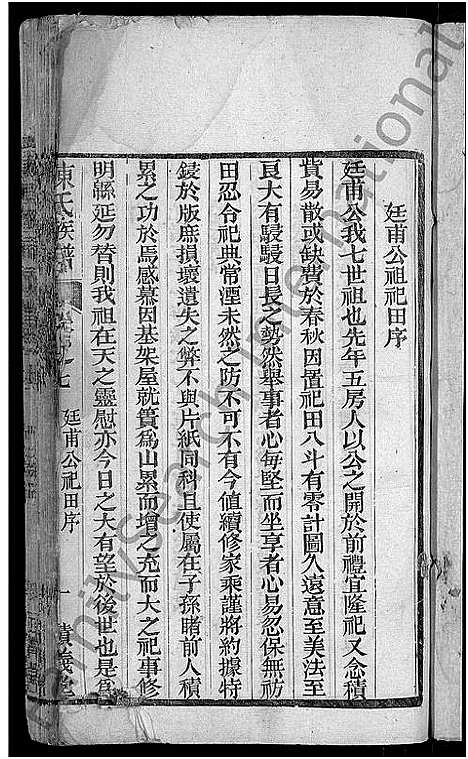 廷甫公祖祀田序
廷甫公我七世祖也先年五房人以公之開於前禮宜隆祀又念積
貲易散或缺費於春秋因置祀田八斗有零計圖久遠意至美法至
良大有駸駸日長之勢然舉事者心每堅而坐享者心易忽保無祊
田忍合祀典常湮未然之防不可不有今值續修家乘謹將約據特
鋟於版庶損壞遺失之弊不與片紙同科且使屬在子孫睹前人積
累之功於焉感慕因基架屋就簣爲山累而增之充而大之祀事修
明緜延勿替則我祖在天之靈慰亦今日之大有望於後世也是爲
陳氏族譜
七
廷甫公祀田序
一
FamilySearch International